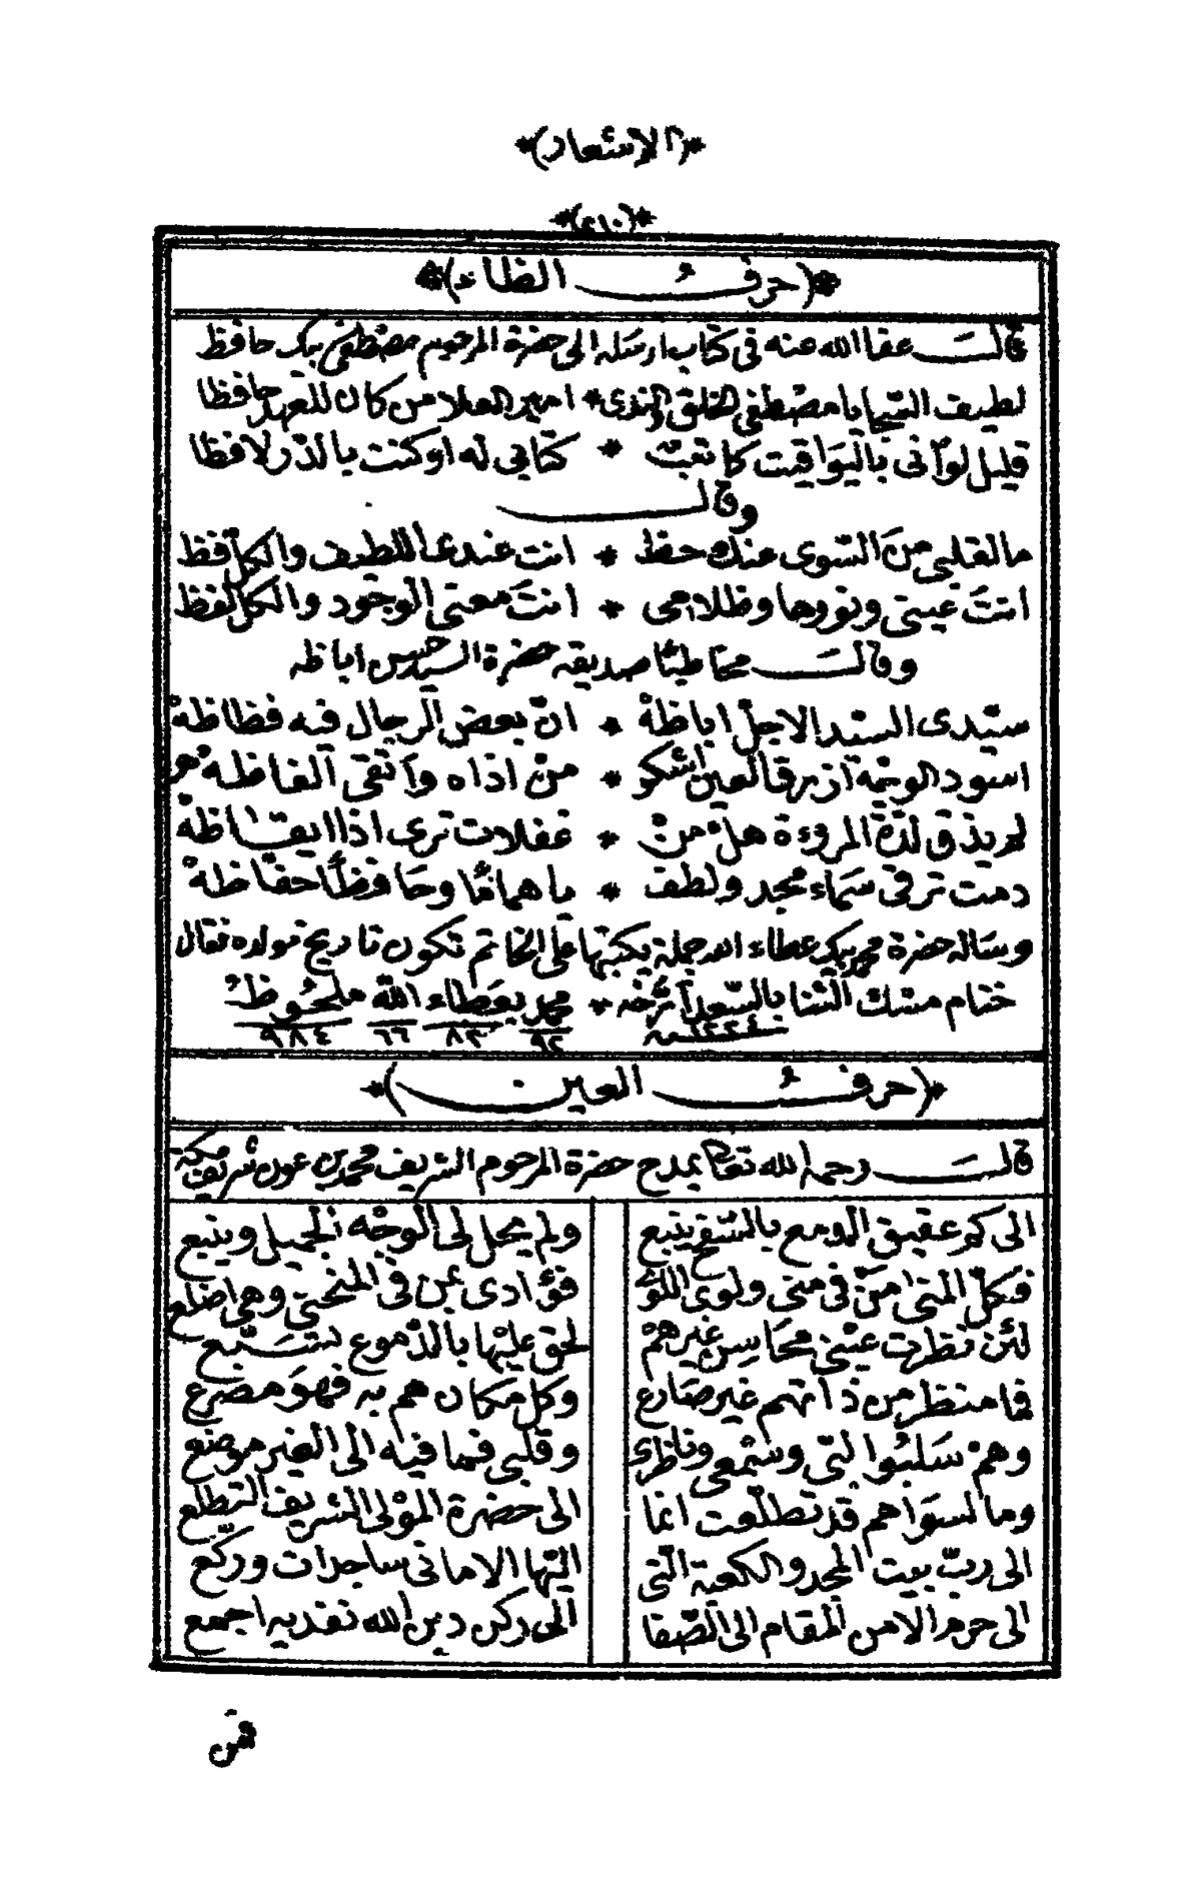 *(الاشعار)*
*(٢١٠)*
*(حرف الظاء)*
قال عفا الله عنه في كتاب ارسله الى حضرة المرحوم مصطفى بيك حافظ
لطيف السجايا يا مصطفى الخلق والندى * امير العلا من كان للعهد حافظا
قليل لو آنى باليواقيت كاتب * كتابي له او كنت بالدر لافظا
وقال
ما لقلبي من السوى عندك حفظ * انت عندي اللطيف والكل فظ
انت عيني ونورها وظلامي * انت معنى الوجود والكل لفظ
وقال مخاطبا صديقه حضرة السيد حسن اباظه
سيدى السيد الاجل اباظة * ان بعض الرجال فيه فظاظة
اسود الوجه ازرق العين اشكو * من اذاه وآتقى الفاظه هو
لم يذق لذة المروءة هل من * غفلات ترى اذا ايقاظة
دمت ترقى سماء مجد ولطف * يا هماما وحافظا حفاظة
وساله حضرة محمد بيك عطاء الله جملة يكتبها على الخاتم تكون تاريخ مولده فقال
ختام مسك الثنا بالسعد آرخه * محمد بعطاء الله ملحوظ
١٢٢٤سنة ٩٢ ٨٢ ٦٦ ٩٨٤
*(حرف العين)*
قال رحمه الله تعالى يمدح حضرة المرحوم الشريف محمد بن عون شريف مكة
الى كم عقيق الدمع بالسفح ينبع ولم يحل لى الوجه الجميل وينبع
فكل المنى من في منى ولوى اللوى فؤادى بمن في المنحنى وهي اضلع
لئن نظرت عيني محاسن غيرهم لحق عليها بالدموع تستبع
فما منظر من ذاتهم غير صارع وكل مكان هم به فهو مصرع
وهم سلبوا لبي وسمعي وناظرى وقلبي فما فيه الى الغير موضع
وما لسواهم قد تطلعت انما الى حضرة المولى الشريف التطلع
الى رب بيت المجد والكعبة التي اليها الاماني ساجدات وركع
الى حرم الامن المقام الى الصفا الى ركن دين الله نفديه اجمع
فمن